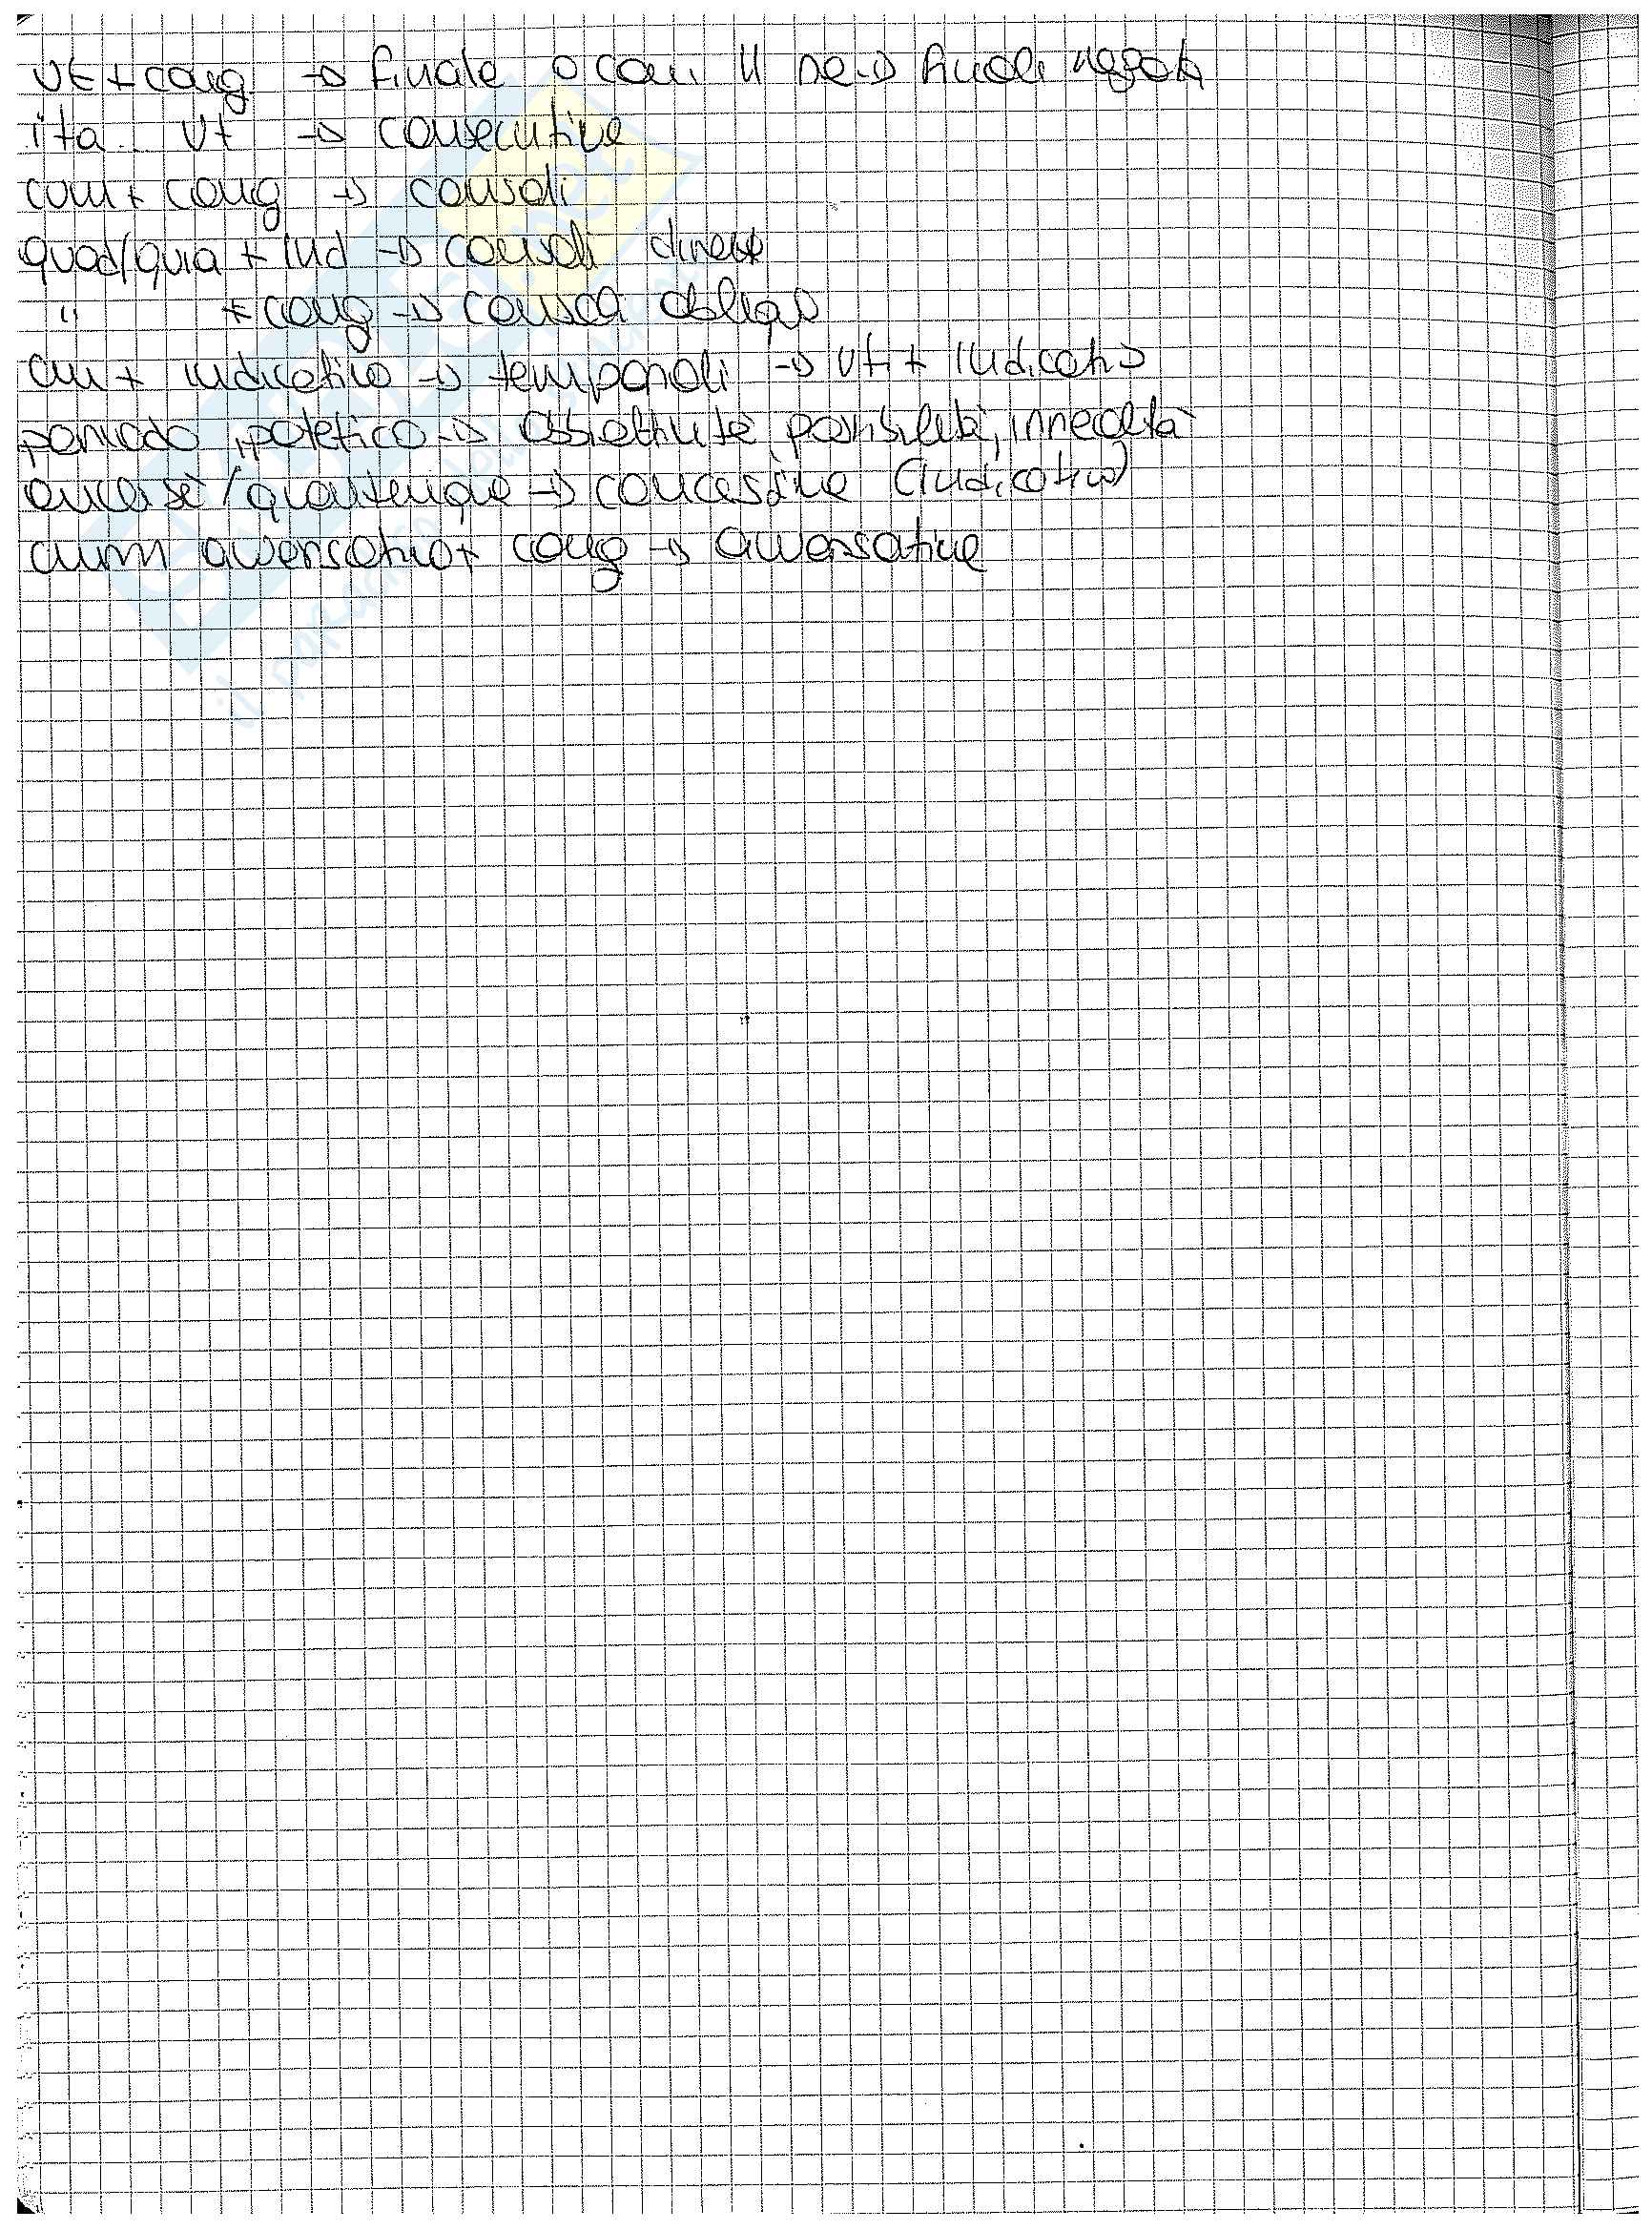 Ut + cong. → finale o con. // ne → finali negat.
ita.. Ut → consecutive
cum + cong → causali
quod/quia + ind → causali dirette
" + cong → causali obliqu
cum + indicativo → temporali → Ut + indicativo
periodo ipotetico → obbiettività, possibilità, irrealtà
anche se / quantunque → concessive (indicativo)
cum avversativo + cong → avversative